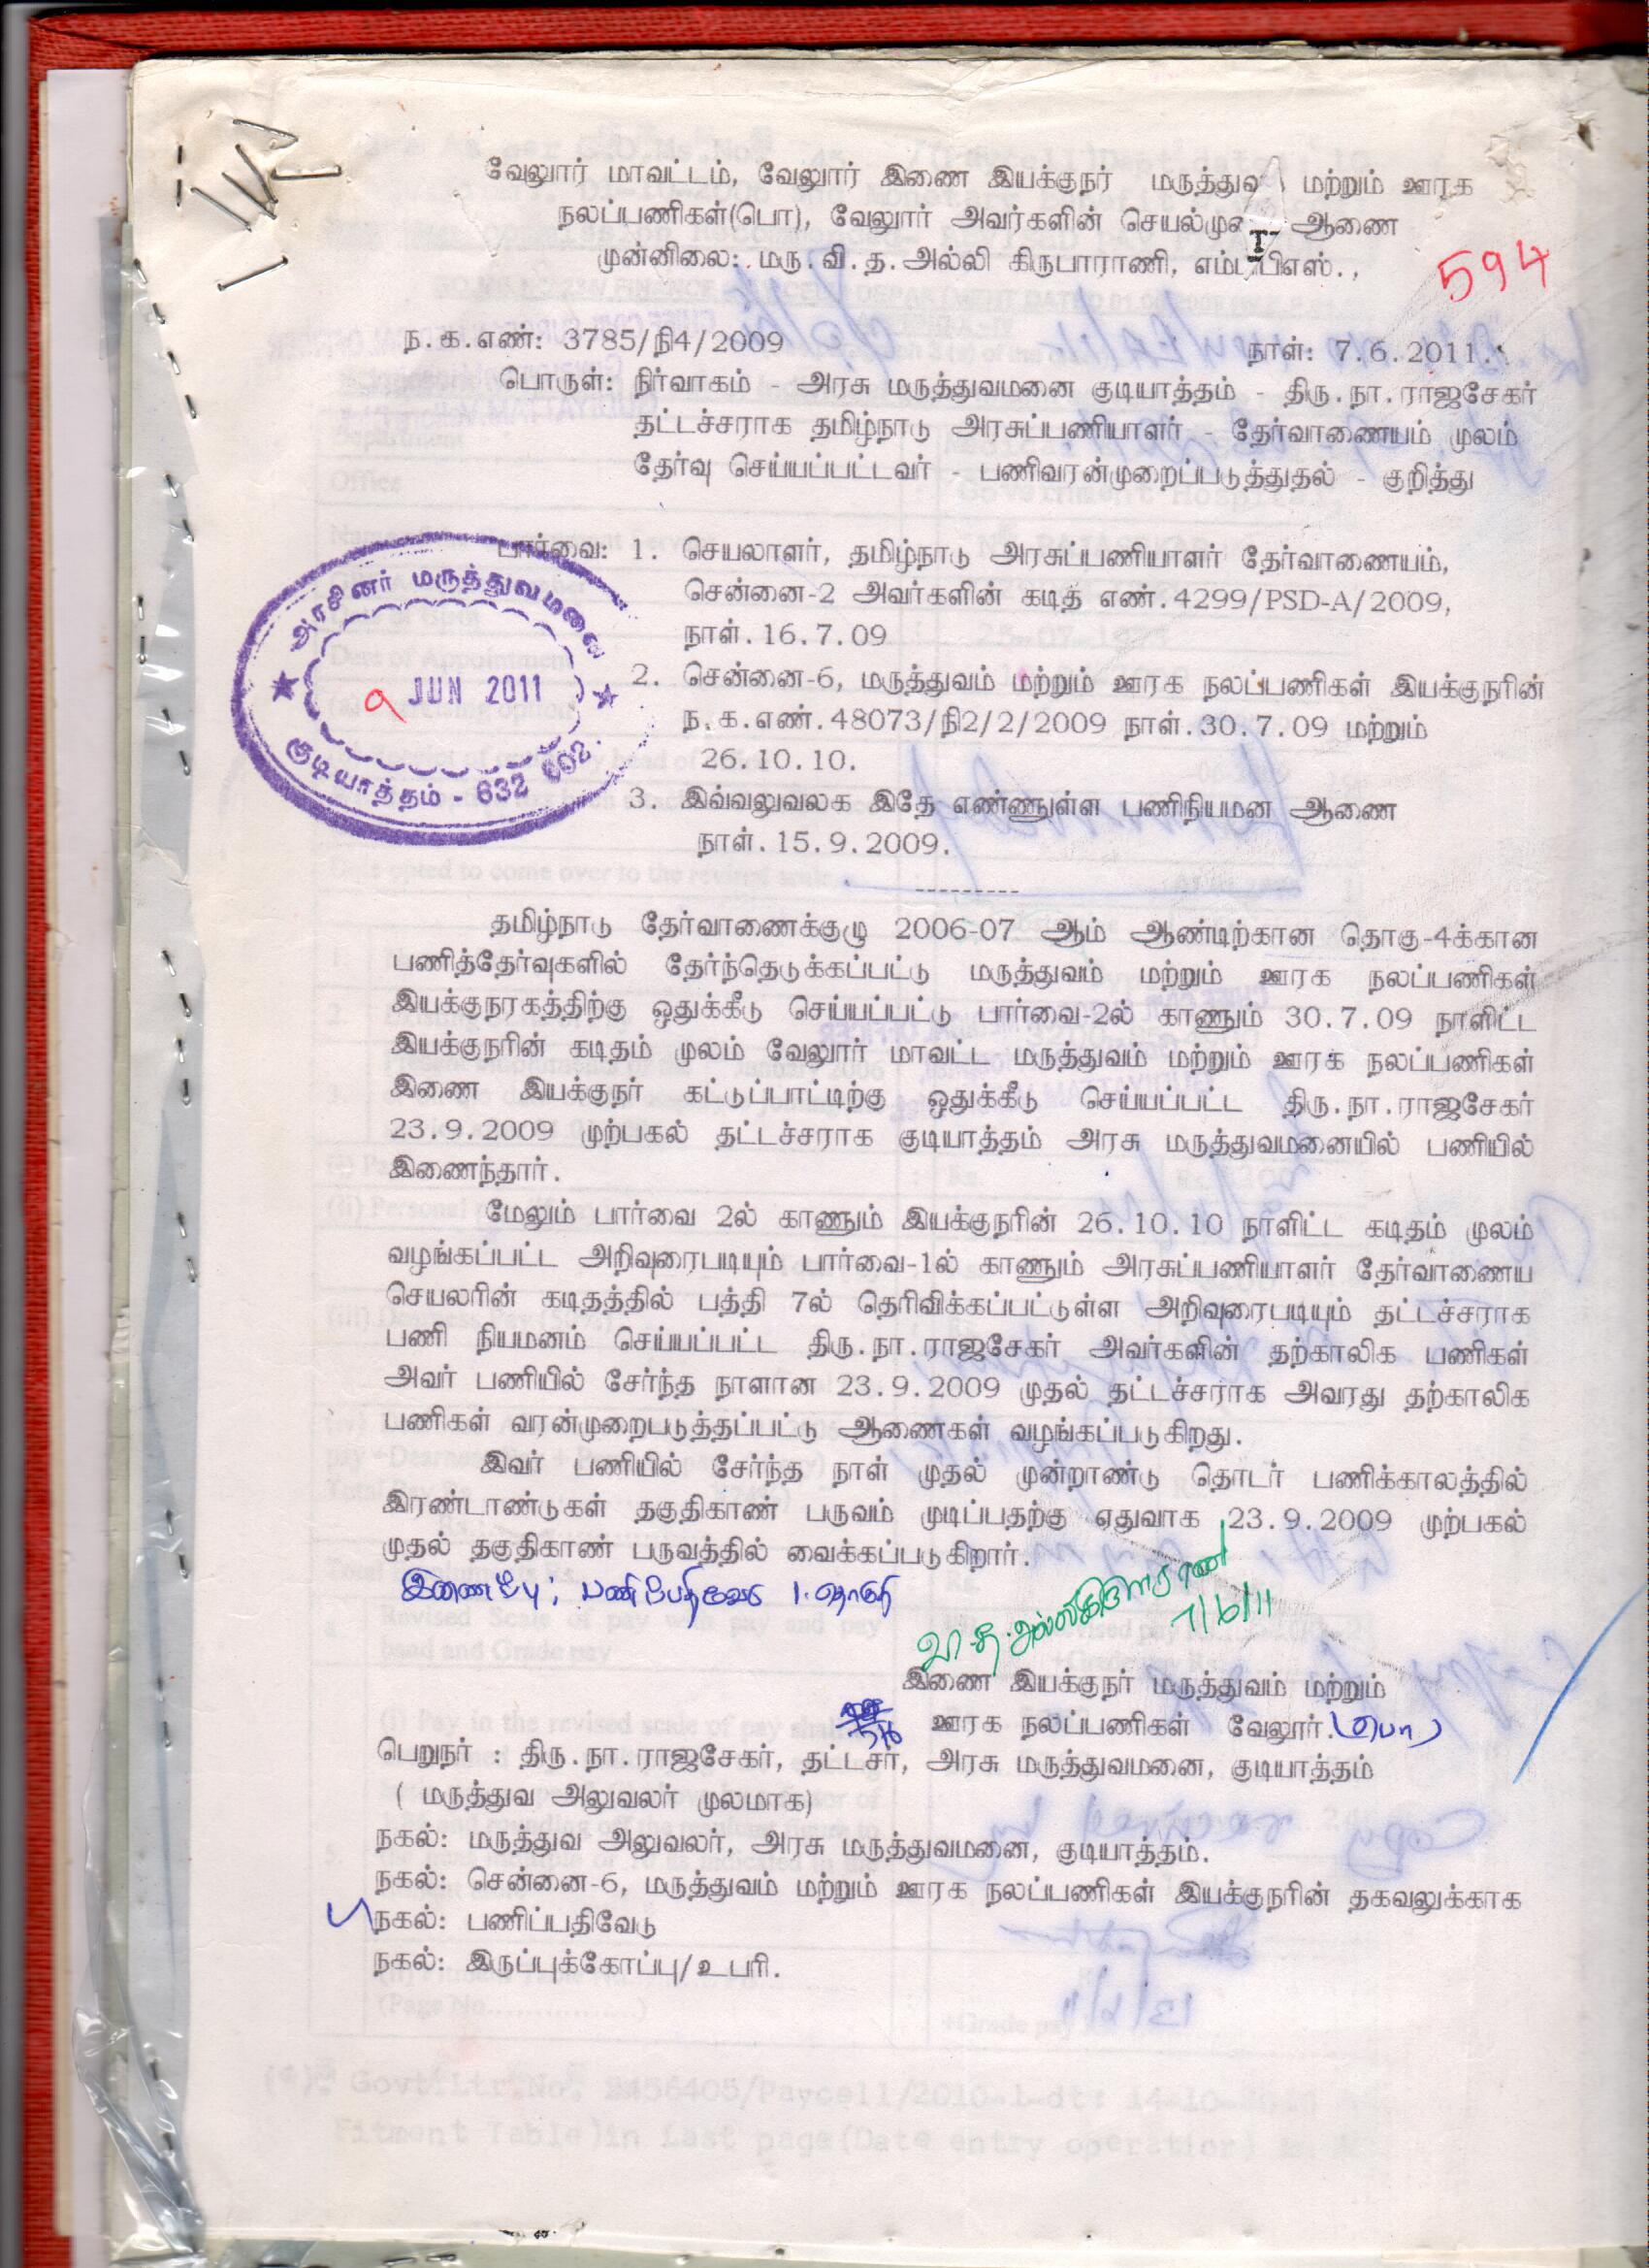 வேலூர் மாவட்டம், வேலூர் இணை இயக்குநர் மருத்துவ மற்றும் ஊரக
நலப்பணிகள்(பொ), வேலூர் அவர்களின் செயல்முறை ஆணை
முன்னிலை: மரு.வி.த.அல்லி கிருபாராணி, எம்.பிஎஸ்.,
594
ந.க.எண்: 3785/நி4/2009 நாள்: 7.6.2011.
பொருள்: நிர்வாகம் - அரசு மருத்துவமனை குடியாத்தம் - திரு.நா.ராஜசேகர்
தட்டச்சராக தமிழ்நாடு அரசுப்பணியாளர் - தேர்வாணையம் மூலம்
தேர்வு செய்யப்பட்டவர் - பணிவரன்முறைப்படுத்துதல் - குறித்து
பார்வை: 1. செயலாளர், தமிழ்நாடு அரசுப்பணியாளர் தேர்வாணையம்,
சென்னை-2 அவர்களின் கடித எண்.4299/PSD-A/2009,
நாள்.16.7.09
2. சென்னை-6, மருத்துவம் மற்றும் ஊரக நலப்பணிகள் இயக்குநரின்
ந.க.எண்.48073/நி2/2/2009 நாள்.30.7.09 மற்றும்
26.10.10.
3. இவ்வலுவலக இதே எண்ணுள்ள பணிநியமன ஆணை
நாள்.15.9.2009.
---------
அரசினர் மருத்துவமனை
9 JUN 2011
குடியாத்தம் - 632 602.
தமிழ்நாடு தேர்வாணைக்குழு 2006-07 ஆம் ஆண்டிற்கான தொகு-4க்கான
பணித்தேர்வுகளில் தேர்ந்தெடுக்கப்பட்டு மருத்துவம் மற்றும் ஊரக நலப்பணிகள்
இயக்குநரகத்திற்கு ஒதுக்கீடு செய்யப்பட்டு பார்வை-2ல் காணும் 30.7.09 நாளிட்ட
இயக்குநரின் கடிதம் மூலம் வேலூர் மாவட்ட மருத்துவம் மற்றும் ஊரக நலப்பணிகள்
இணை இயக்குநர் கட்டுப்பாட்டிற்கு ஒதுக்கீடு செய்யப்பட்ட திரு.நா.ராஜசேகர்
23.9.2009 முற்பகல் தட்டச்சராக குடியாத்தம் அரசு மருத்துவமனையில் பணியில்
இணைந்தார்.
மேலும் பார்வை 2ல் காணும் இயக்குநரின் 26.10.10 நாளிட்ட கடிதம் மூலம்
வழங்கப்பட்ட அறிவுரைபடியும் பார்வை-1ல் காணும் அரசுப்பணியாளர் தேர்வாணைய
செயலரின் கடிதத்தில் பத்தி 7ல் தெரிவிக்கப்பட்டுள்ள அறிவுரைபடியும் தட்டச்சராக
பணி நியமனம் செய்யப்பட்ட திரு.நா.ராஜசேகர் அவர்களின் தற்காலிக பணிகள்
அவர் பணியில் சேர்ந்த நாளான 23.9.2009 முதல் தட்டச்சராக அவரது தற்காலிக
பணிகள் வரன்முறைபடுத்தப்பட்டு ஆணைகள் வழங்கப்படுகிறது.
இவர் பணியில் சேர்ந்த நாள் முதல் முன்றாண்டு தொடர் பணிக்காலத்தில்
இரண்டாண்டுகள் தகுதிகாண் பருவம் முடிப்பதற்கு ஏதுவாக 23.9.2009 முற்பகல்
முதல் தகுதிகாண் பருவத்தில் வைக்கப்படுகிறார்.
இணைப்பு: பணிப்பதிவேடு 1.தொகுதி
வி.த.அல்லிகிருபாராணி
7/6/11
இணை இயக்குநர் மருத்துவம் மற்றும்
ஊரக நலப்பணிகள் வேலூர்.(பொ)
பெறுநர் : திரு.நா.ராஜசேகர், தட்டசர், அரசு மருத்துவமனை, குடியாத்தம்
( மருத்துவ அலுவலர் மூலமாக)
நகல்: மருத்துவ அலுவலர், அரசு மருத்துவமனை, குடியாத்தம்.
நகல்: சென்னை-6, மருத்துவம் மற்றும் ஊரக நலப்பணிகள் இயக்குநரின் தகவலுக்காக
நகல்: பணிப்பதிவேடு
நகல்: இருப்புக்கோப்பு/உபரி.